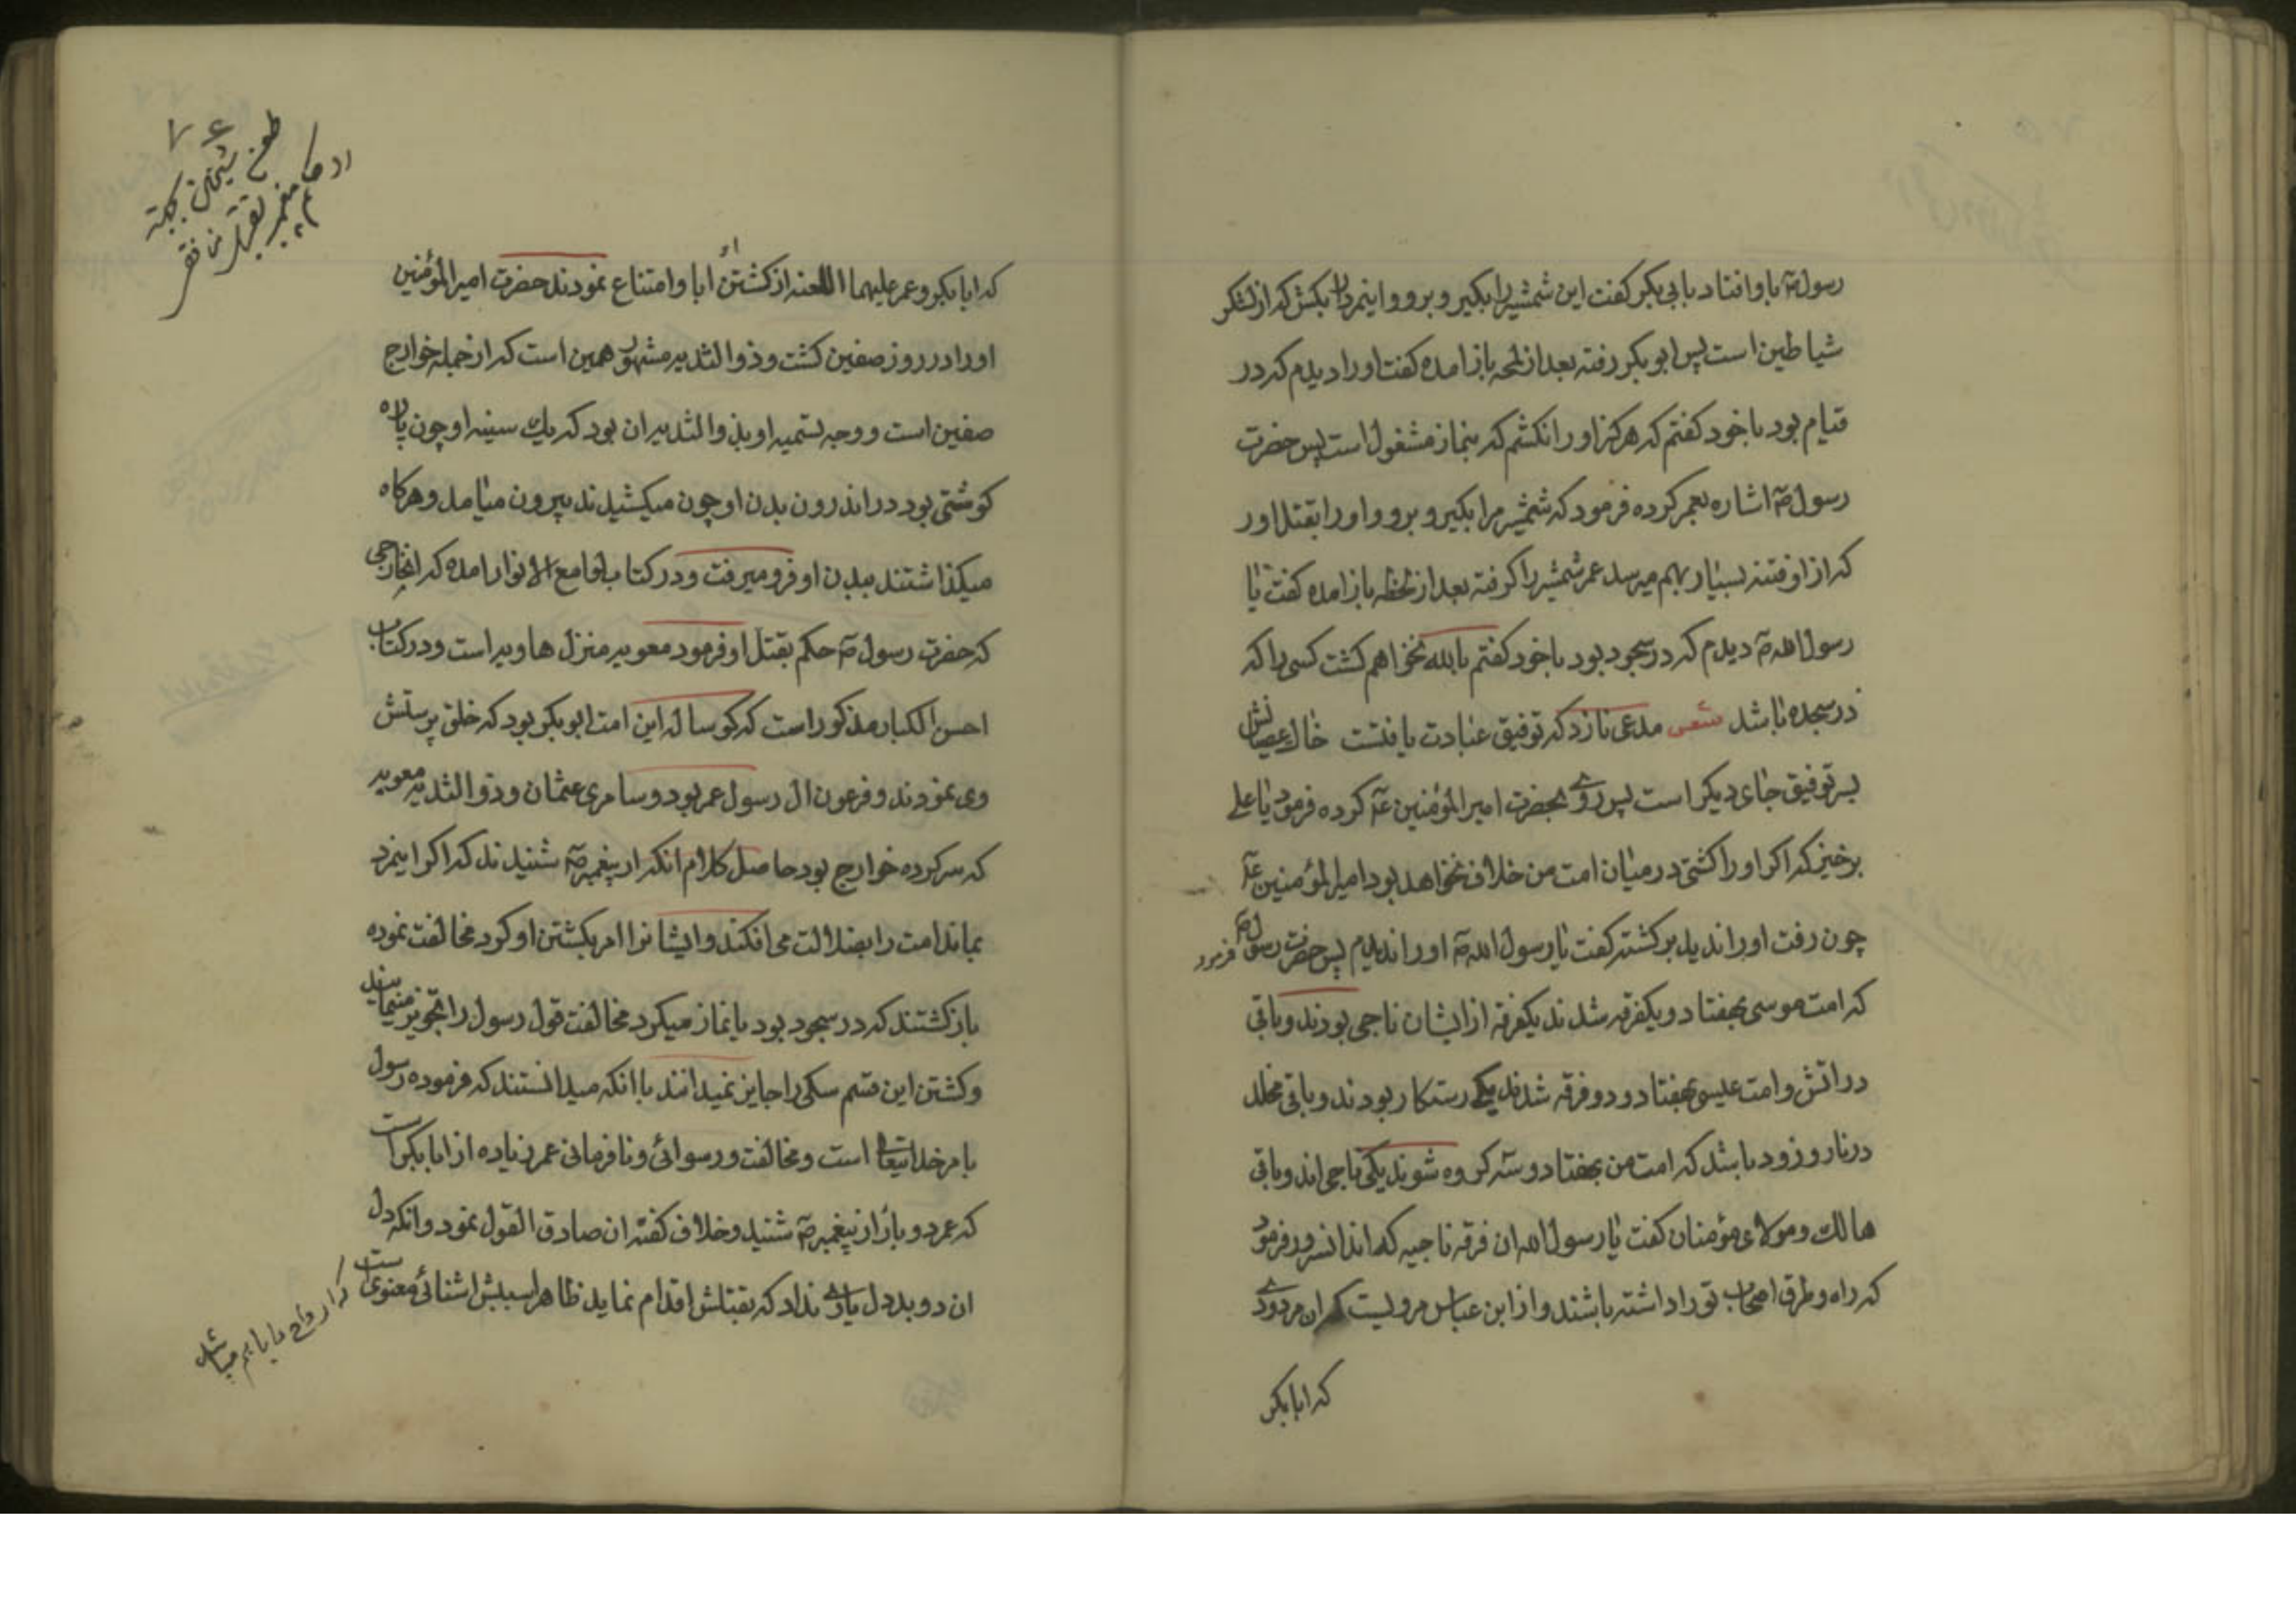 رسول ص باو افتاد بابی بکر کفت این شمشیر را بکیر و برو و اینمرد را بکش که از لشکر
شیاطین است پس ابو بکر رفته بعد از لمحه باز امده کفت او را دیدم که در
قیام بود با خود کفتم که هرکز او را نکشم که بنماز مشغول است پس حضرت
رسول ص اشاره بعمر کرده فرمود که شمشیر مرا بکیر و برو و او را بقتل اور
که از او فتنه بسیار بهم میرسد عمر شمشیر را کرفته بعد از لحظه باز امده کفت یا
رسول الله ص دیدم که در سجود بود با خود کفتم بالله نخواهم کشت کسی را که
در سجده باشد شعر مدعی نازد که توفیق عبادت یافتست خاک عصیانش
بسر توفیق جای دیکر است پس روی بحضرت امیر المؤمنین ع کرده فرمود یا علی
برخیز که اکر او را کشتی در میان امت من خلاف نخواهد بود امیر المؤمنین ع
چون رفت او را ندید برکشته کفت یا رسول الله ص او را ندیدم پس حضرت رسول ص فرمود
که امت موسی بهفتاد و یکفرقه شدند یکفرقه از ایشان ناجی بودند و باقی
در اتش و امت عیسی بهفتاد و دو فرقه شدند یکی رستکار بودند و باقی مخلد
در نار و زود باشد که امت من بهفتاد و سه کروه شوند یکی ناجی اند و باقی
هالک و مولای مؤمنان کفت یا رسول الله ان فرقه ناجیه که اند انسرور فرمود
که راه و طرق اصحاب تو را داشته باشند و از ابن عباس مرویست که ان مردودی
که ابا بکر
۷۶
طعن شیخین بجهة
که ابا بکر و عمر علیهما اللعنه از کشتن او ابا و امتناع نمودند حضرت امیر المؤمنین
او را در روز صفین کشت و ذو الثدیه مشهور همین است که از جمله خوارج
صفین است و وجه تسمیه او بذو الثدیه ان بود که یک سینه او چون پاره
کوشتی بود در اندرون بدن او چون میکشیدند بیرون میامد و هرکاه
میکذاشتند ببدن او فرو میرفت و در کتاب لوامع الانوار امده که انخارجی
که حضرت رسول ص حکم بقتل او فرمود معویه منزل هاویه است و در کتاب
احسن الکبار مذکور است که کوساله این امت ابو بکر بود که خلق پرستش
وی نمودند و فرعون ال رسول عمر بود و سامری عثمان و ذو الثدیه معویه
که سرکرده خوارج بود حاصل کلام انکه از پیغمبر ص شنیدند که اکر اینمرد
بماند امت را بضلالت می افکند و ایشانرا امر بکشتن او کرد مخالفت نموده
باز کشتند که در سجود بود یا نماز میکرد مخالفت قول رسول را تجویز مینمایند
و کشتن این قسم سکی را جایز نمیدانند با انکه میدانستند که فرموده رسول
بامر خدایتعالی است و مخالفت و رسوائی و نافرمانی عمر زیاده از ابا بکر است
که عمر دو بار از پیغمبر ص شنید و خلاف کفته ان صادق القول نمود و انکه دل
ان دو بد دل یاری نداد که بقتلش اقدام نماید ظاهرا سببش اشنائی معنوی است
که ارواح را با هم میباشد